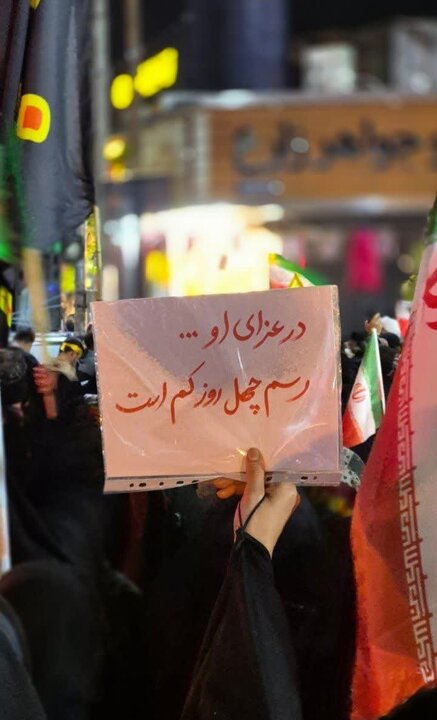 در عزای او ...
رسم چهل روز کم است